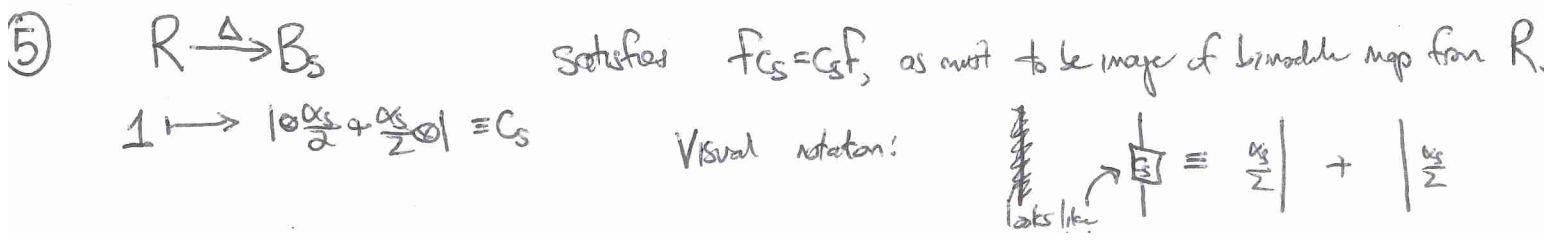 ⑤ R →Δ B_s satisfies fc_s = c_s f, as must to be image of bimodule map from R.
1 ↦ 1⊗α_s/2 + α_s/2⊗1 ≡ c_s
Visual notation: c_s ≡ α_s/2 | + | α_s/2
looks like